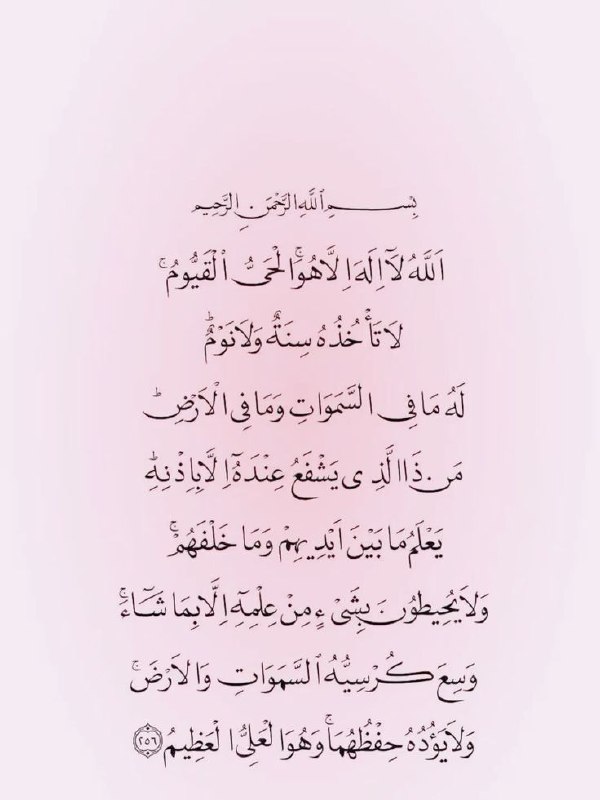 بِسْمِ ٱللَّهِ الرَّحْمَنِ الرَّحِيمِ
اَللَّهُ لَآ اِلَهَ اِلَّا هُوَۚ الْحَىُّ ٱلْقَيُّومُۚ
لَا تَأْخُذُهُ سِنَةٌ وَلَا نَوْمٌؕ
لَهُ مَا فِى السَّمَوَاتِ وَمَا فِى الْاَرْضِؕ
مَن ذَا الَّذِى يَشْفَعُ عِنْدَهُٓ اِلَّا بِاِذْنِهِؕ
يَعْلَمُ مَا بَيْنَ اَيْدِيهِمْ وَمَا خَلْفَهُمْۚ
وَلَا يُحِيطُونَ بِشَىْءٍ مِنْ عِلْمِهِٓ اِلَّا بِمَا شَآءَۚ
وَسِعَ كُرْسِيُّهُ ٱلسَّمَوَاتِ وَالْاَرْضَۚ
وَلَا يَؤُدُهُ حِفْظُهُمَاۚ وَهُوَ الْعَلِىُّ الْعَظِيمُ ٢٥٦